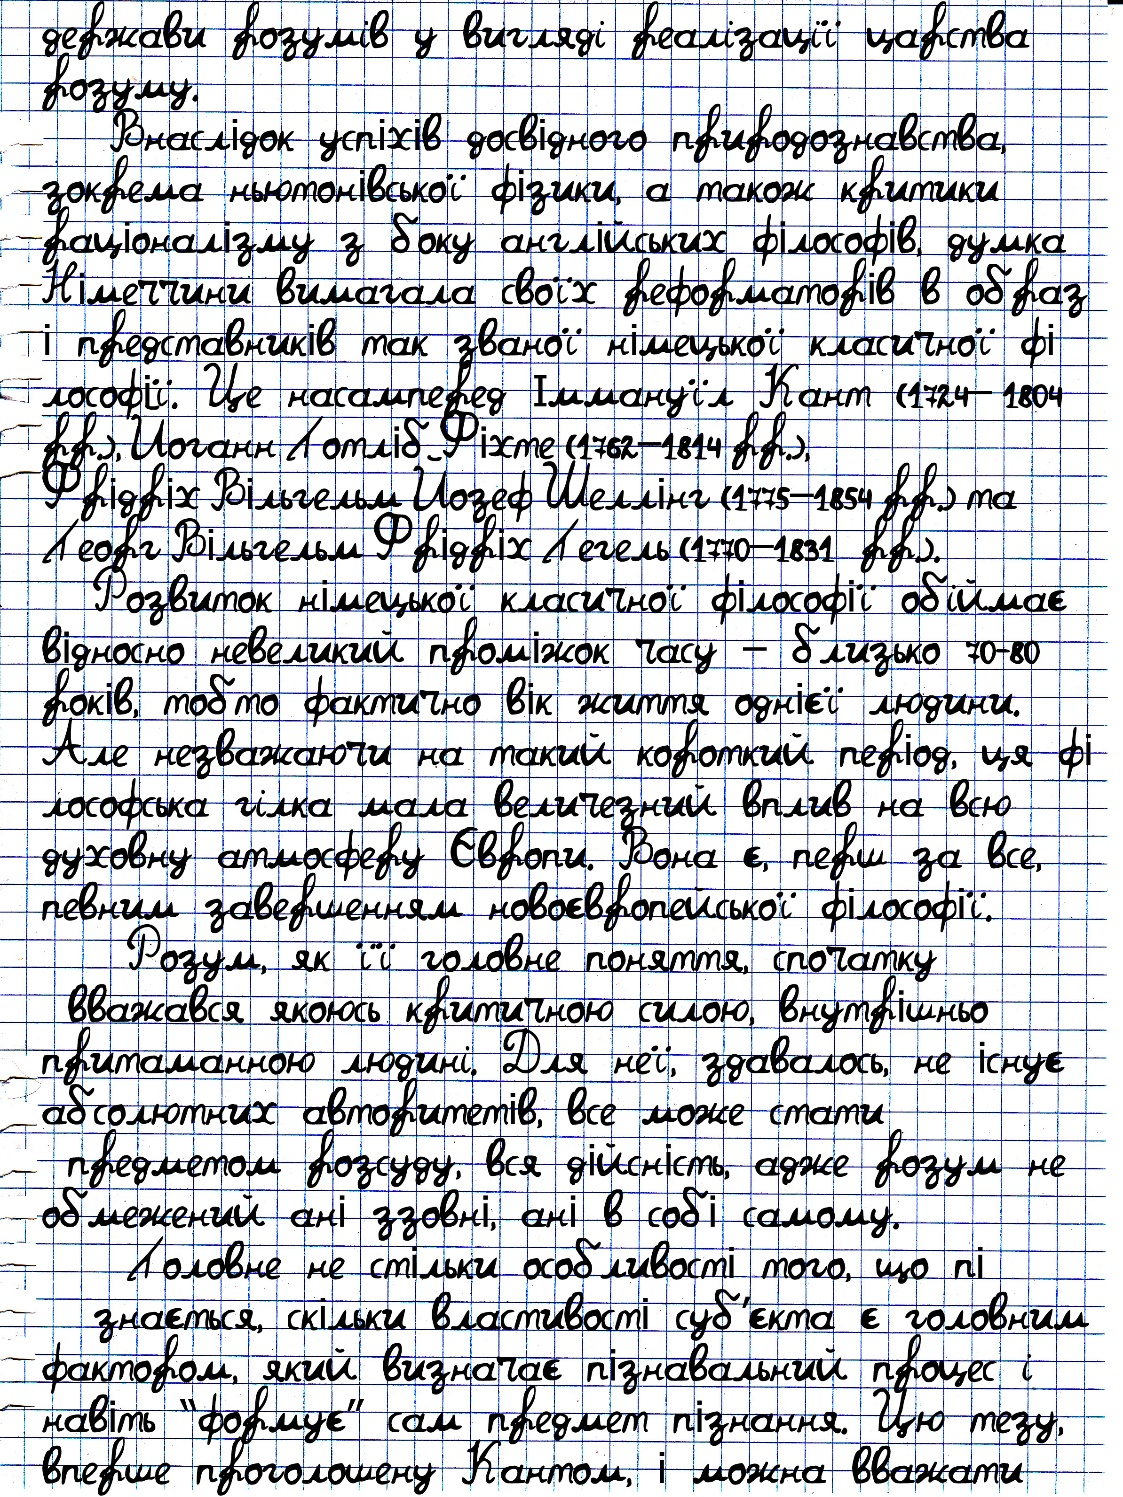 держави розумів у вигляді реалізації царства
розуму.
Внаслідок успіхів досвідного природознавства,
зокрема ньютонівської фізики, а також критики
раціоналізму з боку англійських філософів, думка
Німеччини вимагала своїх реформаторів в образ
і представників так званої німецької класичної фі
лософії. Це насамперед Іммануїл Кант (1724–1804
р.р.), Йоганн Готліб Фіхте (1762–1814 р.р.),
Фрідріх Вільгельм Йозеф Шеллінг (1775–1854 р.р.) та
Георг Вільгельм Фрідріх Гегель (1770–1831 р.р.).
Розвиток німецької класичної філософії обіймає
відносно невеликий проміжок часу – близько 70-80
років, тобто фактично вік життя однієї людини.
Але незважаючи на такий короткий період, ця фі
лософська гілка мала величезний вплив на всю
духовну атмосферу Європи. Вона є, перш за все,
певним завершенням новоєвропейської філософії.
Розум, як її головне поняття, спочатку
вважався якоюсь критичною силою, внутрішньо
притаманною людині. Для неї, здавалось, не існує
абсолютних авторитетів, все може стати
предметом розсуду, вся дійсність, адже розум не
обмежений ані ззовні, ані в собі самому.
Головне не стільки особливості того, що пі
знається, скільки властивості суб'єкта є головним
фактором, який визначає пізнавальний процес і
навіть "формує" сам предмет пізнання. Цю тезу,
вперше проголошену Кантом, і можна вважати